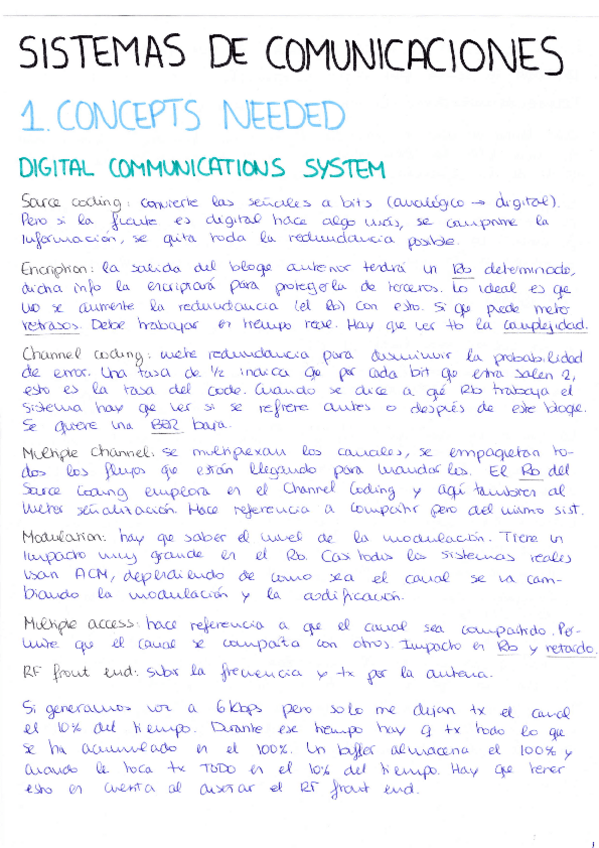 SISTEMAS DE COMUNICACIONES
1. CONCEPTS NEEDED
DIGITAL COMMUNICATIONS SYSTEM
Source coding: convierte las señales a bits (analógico → digital).
Pero si la fuente es digital hace algo más, se comprime la
información, se quita toda la redundancia posible.
Encription: la salida del bloqe anterior tendrá un Rb determinado,
dicha info la encriptará para protegerla de terceros. Lo ideal es qe
no se aumente la redundancia (el Rb) con esto. Si qe puede meter
retrasos. Debe trabajar en tiempo real. Hay que ver tb la complejidad.
Channel coding: mete redundancia para disminuir la probabilidad
de error. Una tasa de 1/2 indica qe por cada bit qe entra salen 2,
esto es la tasa del code. Cuando se dice a qé Rb trabaja el
sistema hay qe ver si se refiere antes o después de este bloqe.
Se quiere una BER baja.
Multiple channel: se multiplexan los canales, se empaquetan to-
dos los flujos qe están llegando para mandarlos. El Rb del
Source Coding empeora en el Channel Coding y aquí también al
meter señalización. Hace referencia a compartir pero del mismo sist.
Modulation: hay qe saber el nivel de la modulación. Tiene un
impacto muy grande en el Rb. Casi todos los sistemas reales
usan ACM, dependiendo de como sea el canal se va cam-
biando la modulación y la codificación.
Multiple access: hace referencia a que el canal sea compartido. Per-
mite que el canal se comparta con otros. Impacto en Rb y retardo.
RF front end: subir la frecuencia y tx por la antena.
Si generamos voz a 6kbps pero solo me dejan tx el canal
el 10% del tiempo. Durante ese tiempo hay q tx todo lo que
se ha acumulado en el 100%. Un buffer almacena el 100% y
cuando le toca tx TODO en el 10% del tiempo. Hay que tener
esto en cuenta al diseñar el RF front end.
1